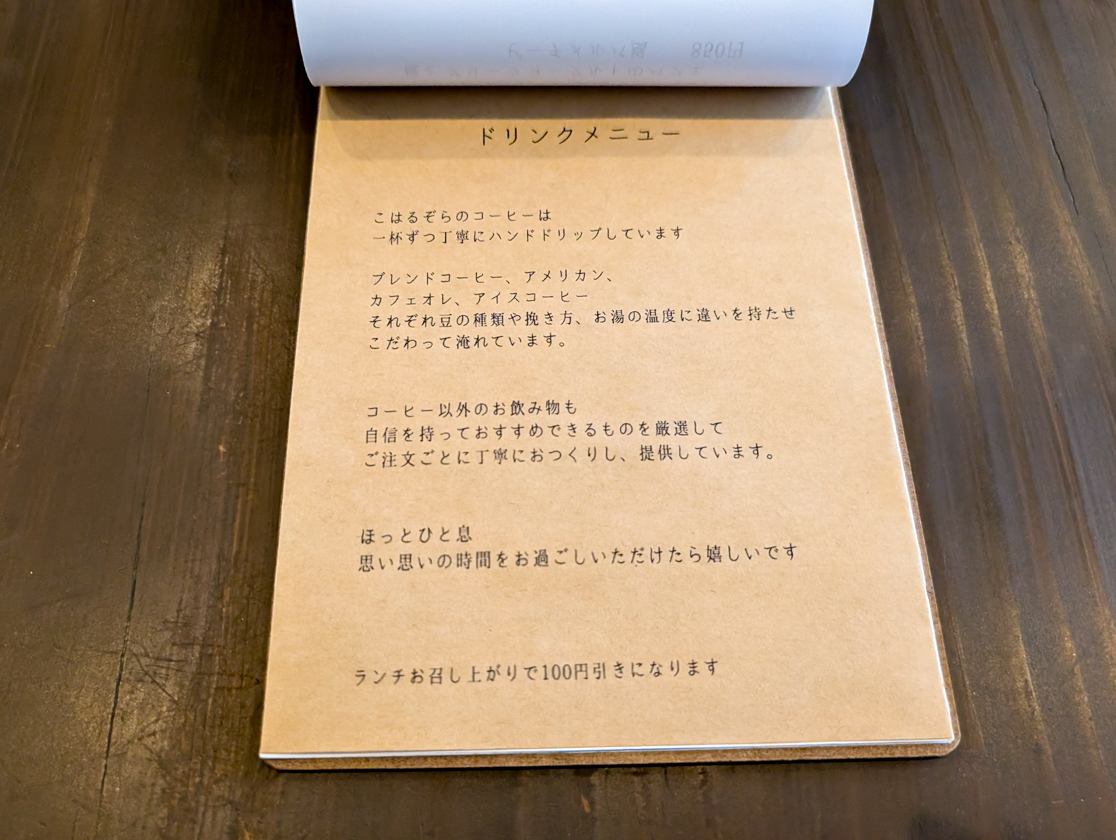 ドリンクメニュー
こはるぞらのコーヒーは
一杯ずつ丁寧にハンドドリップしています
ブレンドコーヒー、アメリカン、
カフェオレ、アイスコーヒー
それぞれ豆の種類や挽き方、お湯の温度に違いを持たせ
こだわって淹れています。
コーヒー以外のお飲み物も
自信を持っておすすめできるものを厳選して
ご注文ごとに丁寧におつくりし、提供しています。
ほっとひと息
思い思いの時間をお過ごしいただけたら嬉しいです
ランチお召し上がりで100円引きになります